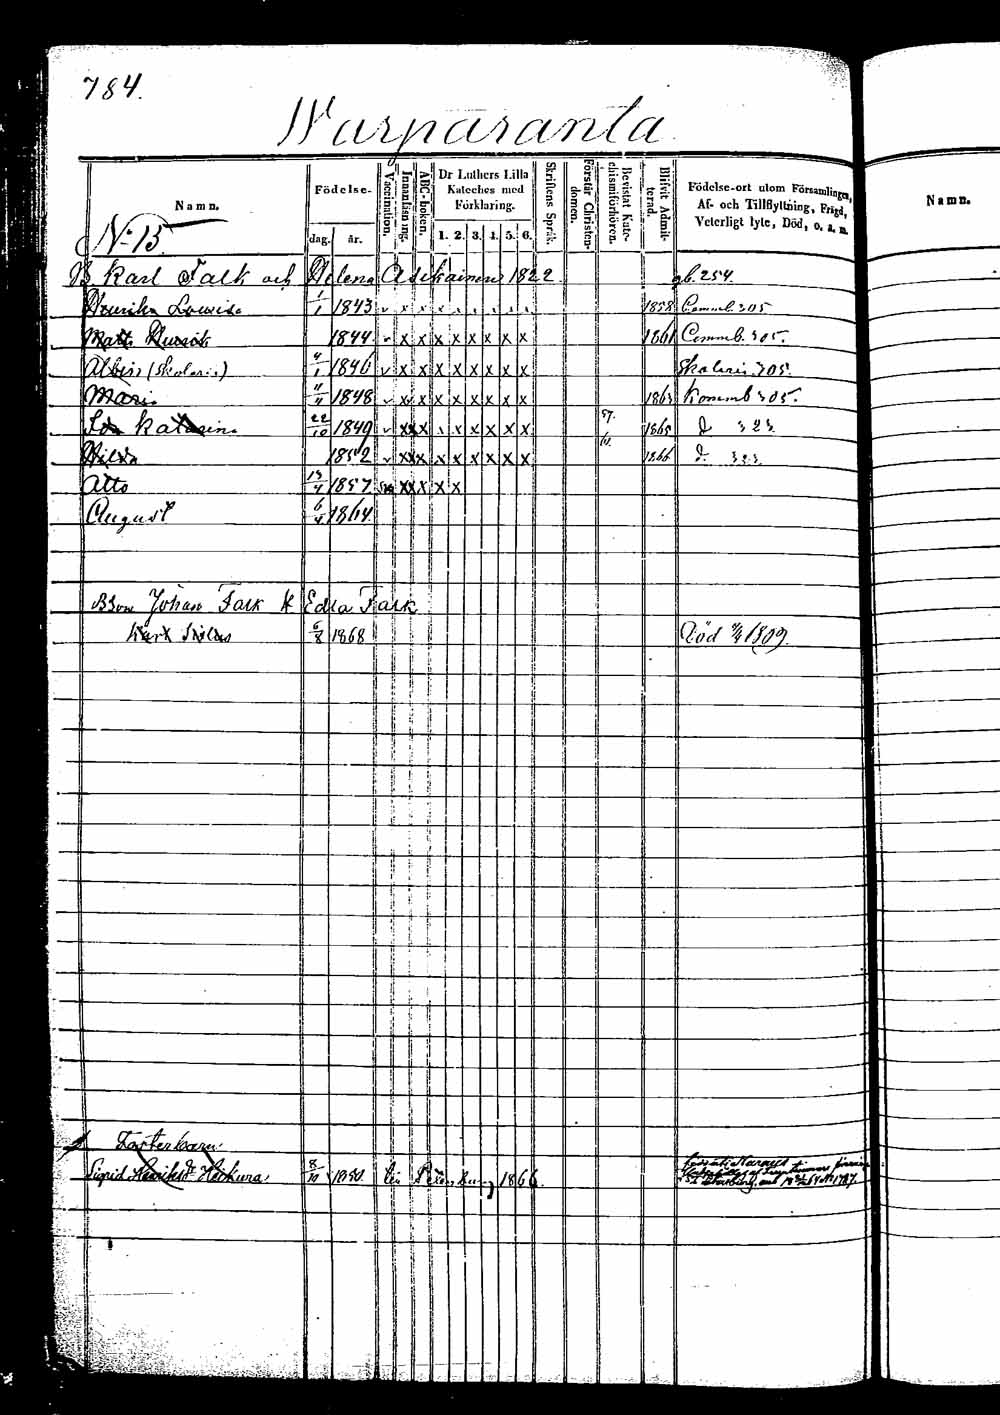 784.
Warparanta
Namn.
Födelse-
dag. år.
Vaccination.
Innanläsning.
ABC-boken.
Dr Luthers Lilla
Kateches med
Förklaring.
1. 2. 3. 4. 5. 6.
Skriftens Språk.
Förstår Christen-
domen.
Bevistat Kate-
chismiförhören.
Blifvit Admit-
terad.
Födelse-ort utom Församlingen,
Af- och Tillflyttning, Frigd,
Veterligt lyte, Död, o. a. m.
Namn.
No 15.
B. Karl Falk och Helena Asikainen 1822. gb. 254.
Henrika Lowisa 1/1 1843 1858 Commb. 305
Matts 1844 x x x x x x x x 1861 Commb. 305.
Albin (Skolaris) 4/1 1846 x x x x x x x x Skolaris 305.
Maria 11/4 1848 x x x x x x x x 1863 Kommb 305.
Katarina 22/10 1849 x x x x x x x 57. 61. 1865 d 323
Hilda 1852 x x x x x x x x 1866 d. 323
Otto 13/4 1857 x x x x x
August 6/4 1864.
Bson Johan Falk H Edla Falk
Karl 6/8 1868 Död 1809.
Fosterbarn
Sigrid Henriksdr Heskura 8/10 1850. Petersburg 1866.